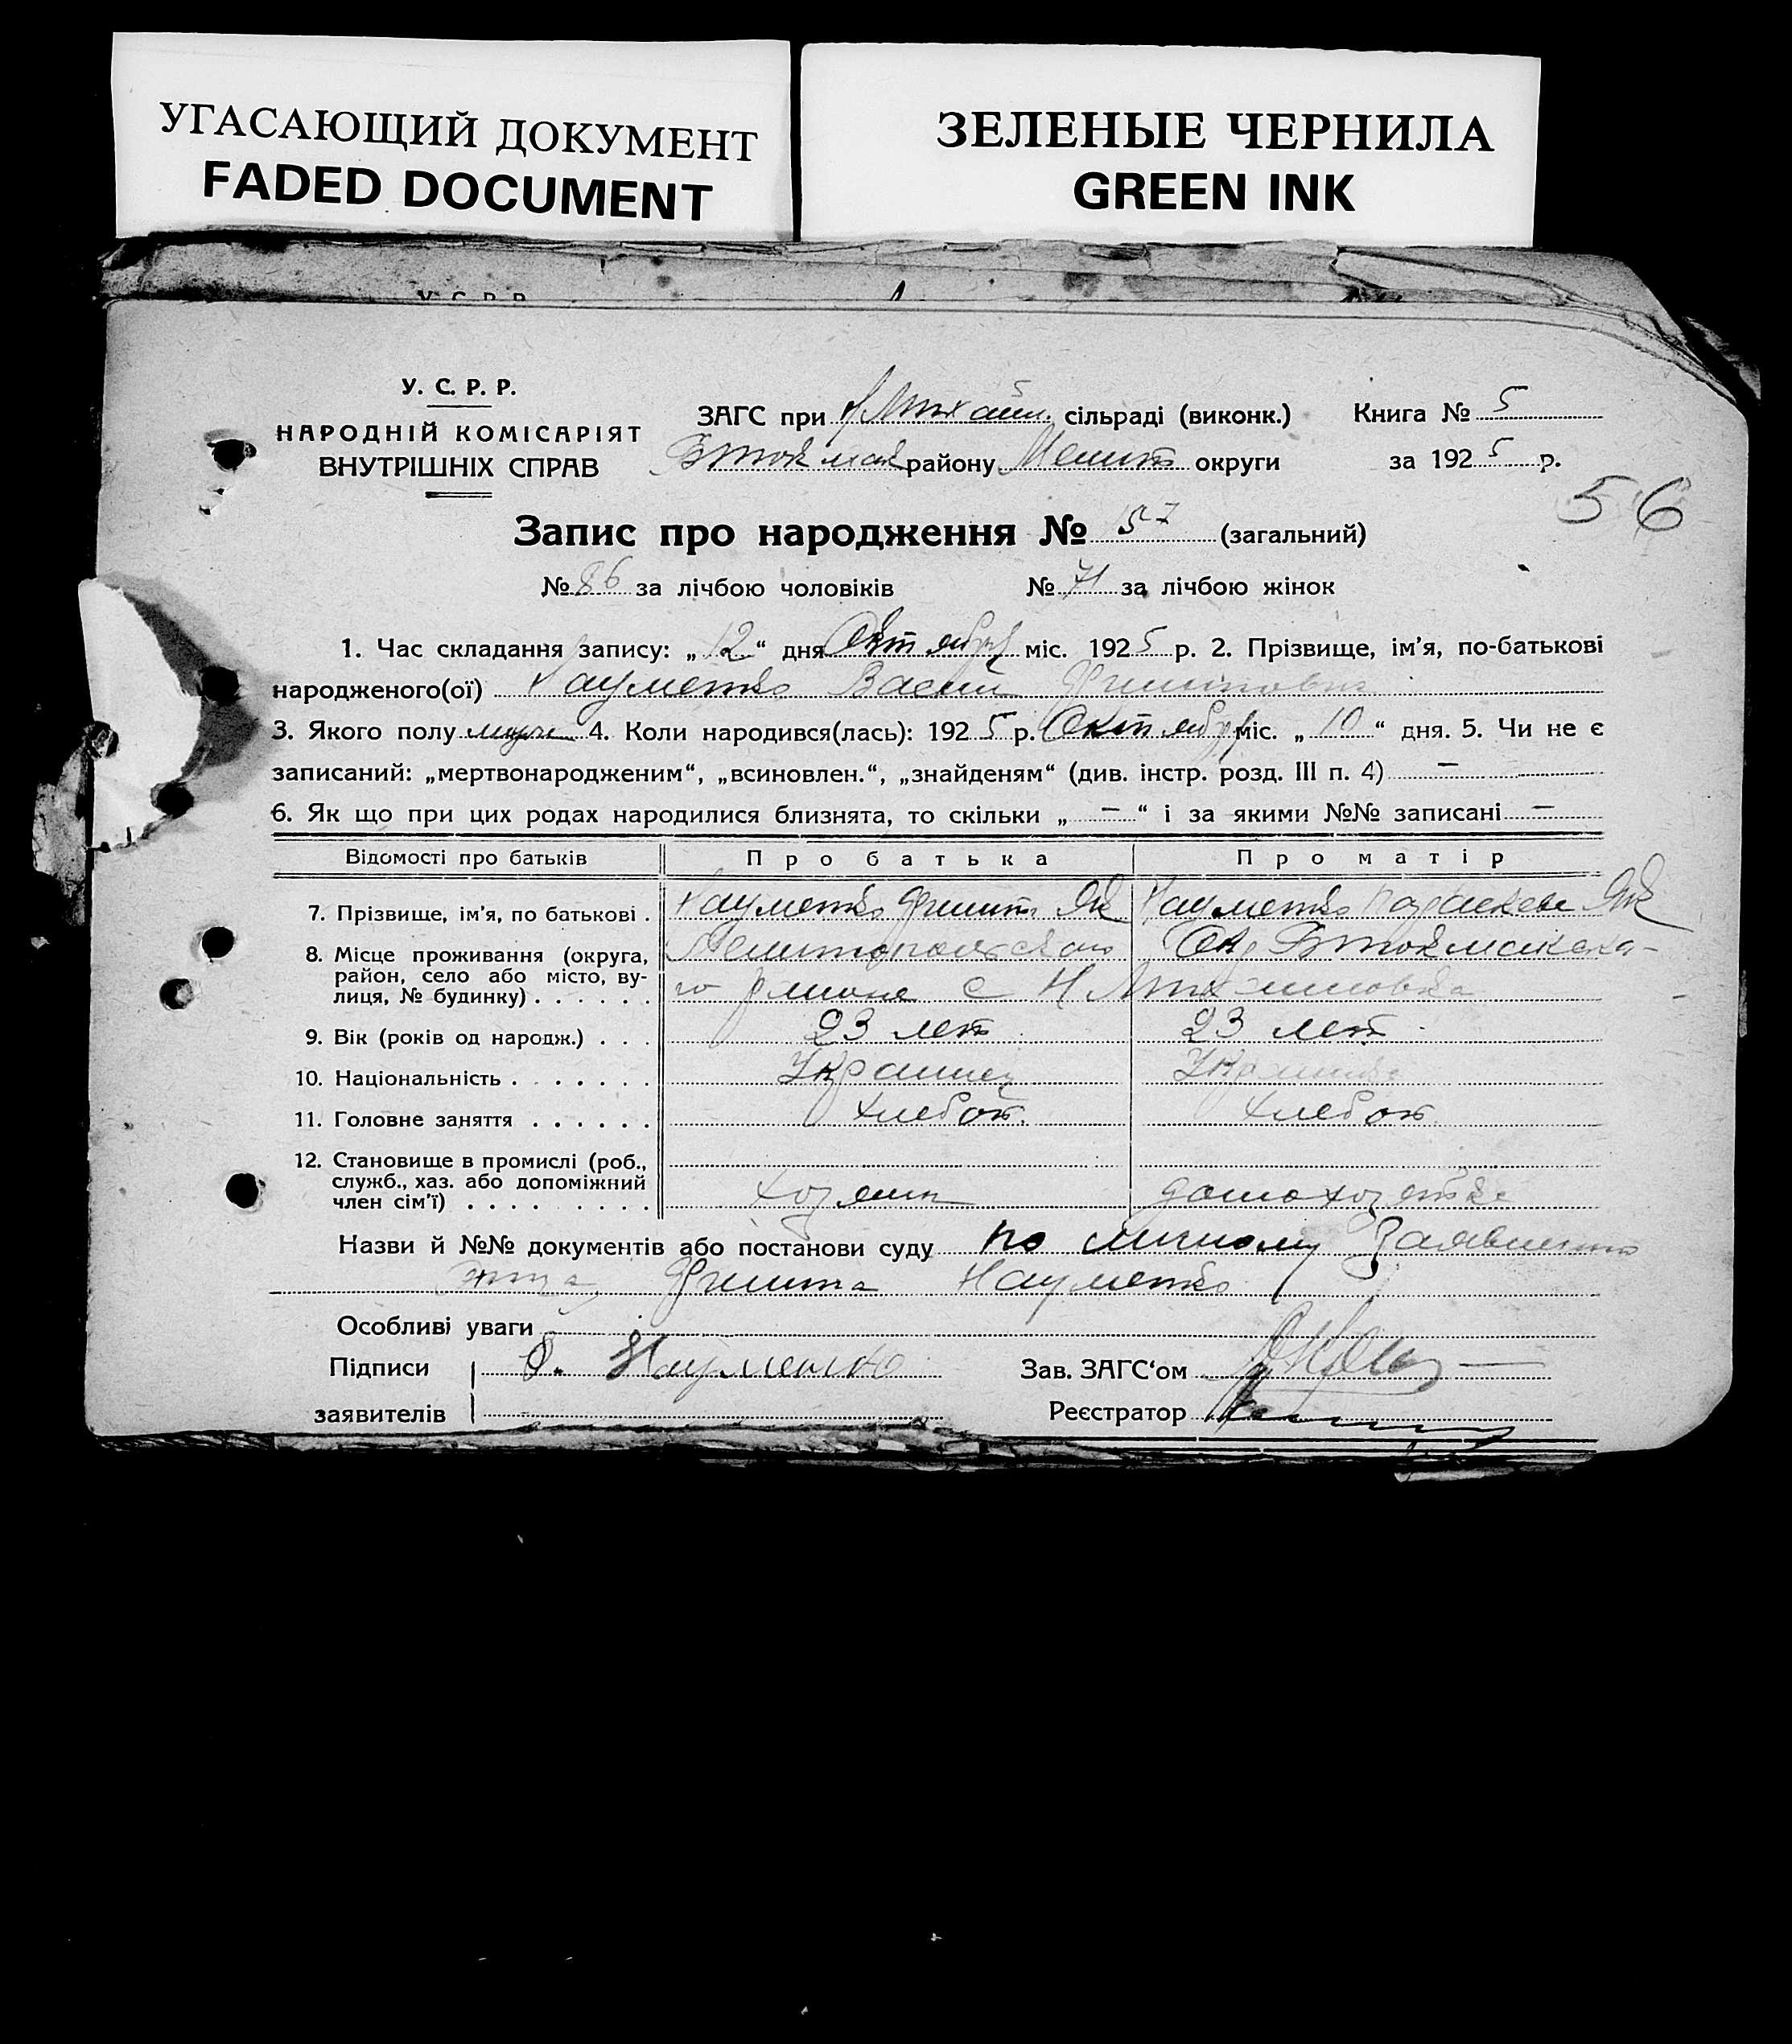 УГАСАЮЩИЙ ДОКУМЕНТ
FADED DOCUMENT
ЗЕЛЕНЫЕ ЧЕРНИЛА
GREEN INK
У. С. Р. Р.
У. С. Р. Р.
НАРОДНІЙ КОМІСАРІЯТ
ВНУТРІШНІХ СПРАВ
ЗАГС при Н Михайл. сільраді (виконк.) Книга № 5
Втокмак району Мелит округи за 1925 р.
56
Запис про народження № 157 (загальний)
№ 86 за лічбою чоловіків № 71 за лічбою жінок
1. Час складання запису: „12“ дня Октября міс. 1925 р. 2. Прізвище, ім’я, по-батькові
народженого(ої) Науменко Васил Филипович
3. Якого полу муж 4. Коли народився(лась): 1925 р. Октября міс. „10“ дня. 5. Чи не є
записаний: „мертвонародженим“, „всиновлен.“, „знайденям“ (див. інстр. розд. III п. 4) —
6. Як що при цих родах народилися близнята, то скільки „—“ і за якими №№ записані —
Відомості про батьків Про батька Про матір
7. Прізвище, ім’я, по батькові . Науменко Филипп Як Науменко Як
8. Місце проживання (округа, район, село або місто, вулиця, № будинку) . . . . . . Мелитопольского Окр Втокмакска-
го района с Н Михайловка
9. Вік (років од народж.) . . . 23 лет 23 лет
10. Національність . . . . . . . Украинец Украинка
11. Головне заняття . . . . . . Хлебоп. Хлебоп.
12. Становище в промислі (роб.,
служб., хаз. або допоміжний
член сім’ї) . . . . . . . . . хозяин домохозяйка
Назви й №№ документів або постанови суду по личному Заявлению
отца Филиппа Науменко
Особливі уваги
Підписи Ф. Науменко Зав. ЗАГС‘ом
заявителів Реєстратор